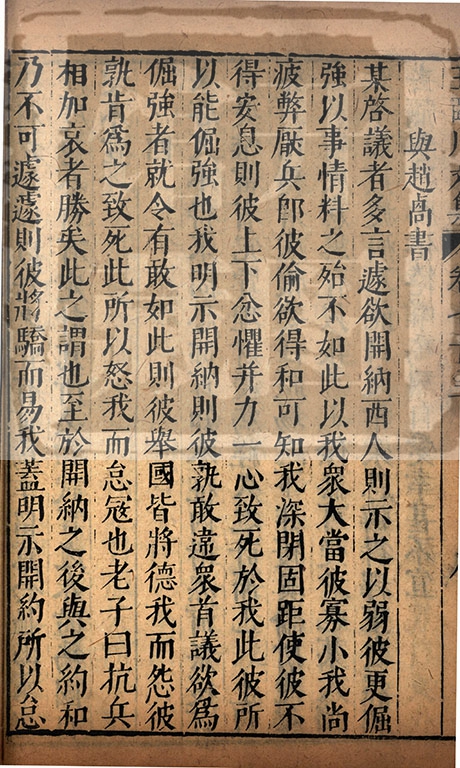 與趙卨書
某啓議者多言遽欲開納西人則示之以弱彼更倔
強以事情料之殆不如此以我衆大當彼寡小我尚
疲弊厭兵即彼偷欲得和可知我深閉固距使彼不
得安息則彼上下忿懼并力一心致死於我此彼所
以能倔強也我明示開納則彼孰敢違衆首議欲爲
倔強者就令有敢如此則彼舉國皆將德我而怨彼
孰肯爲之致死此所以怒我而怠寇也老子曰抗兵
相加哀者勝矣此之謂也至於開納之後與之約和
乃不可遽遽則彼將驕而易我蓋明示開約所以怠